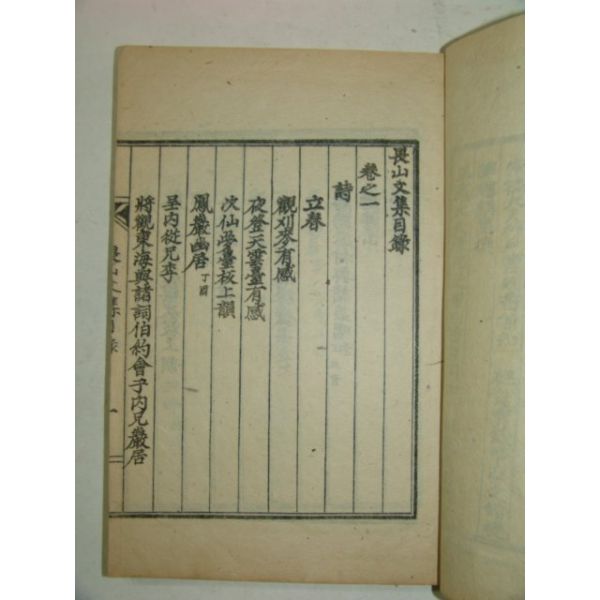 畏山文集目錄
卷之一
詩
立春
觀刈麥有感
夜登天雲臺有感
次仙夢臺板上韻
鳳巖幽居丁酉
呈内從兄李
將觀東海與諸詞伯約會于内兄巖居
畏山文集目錄 一